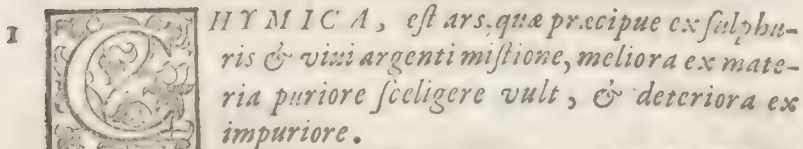 1 CHYMICA, eſt ars, quæ præcipue ex ſulphu-
ris & vivi argenti miſtione, meliora ex mate-
ria puriore ſceligere vult, & deteriora ex
impuriore.